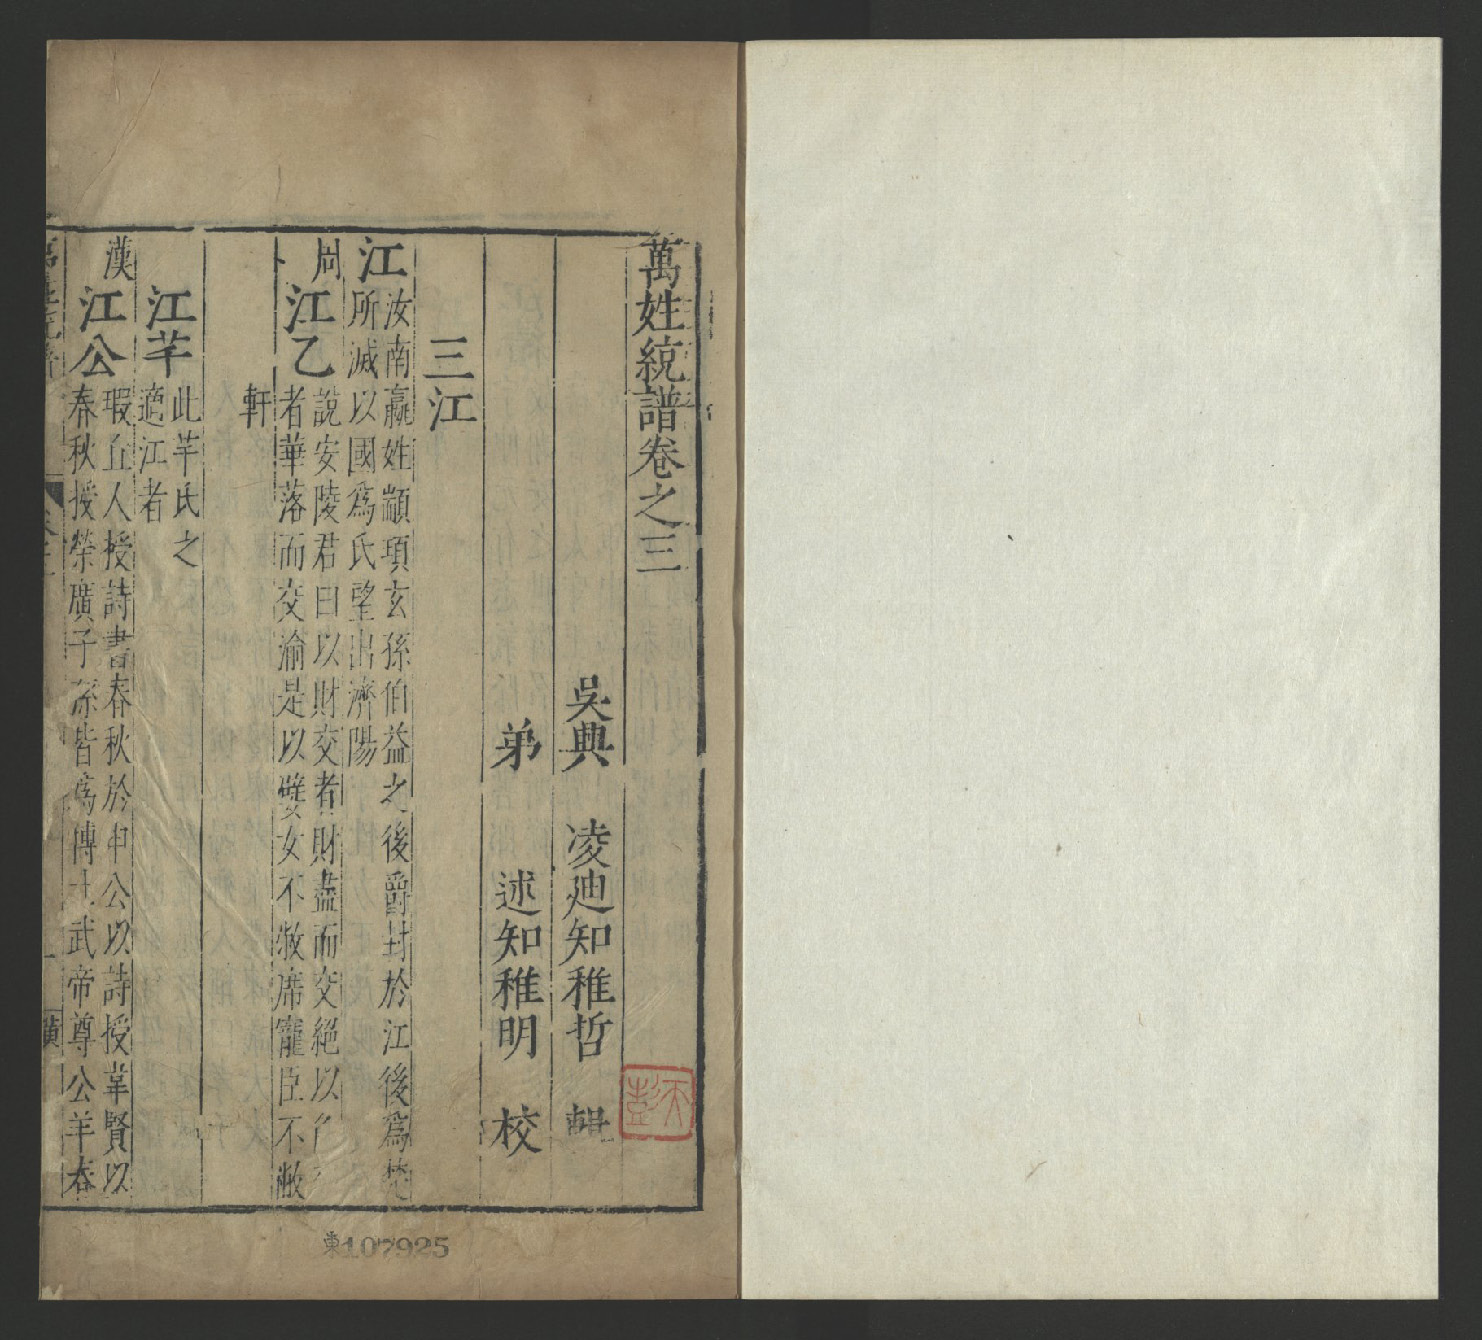 萬姓統譜卷之三
吳興 凌迪知稚哲 輯
弟 述知稚明 校
三江
江
汝南嬴姓顓頊玄孫伯益之後爵封於江後爲楚
所滅以國爲氏望出濟陽
周
江乙
說安陵君曰以財交者財盡而交絕以色
者華落而交渝是以嬖女不敝席寵臣不敝
軒
江芊
此芊氏之
適江者
漢
江公
瑕丘人授詩書春秋於申公以詩授韋賢以
春秋授榮廣子孫皆爲博士武帝尊公羊春
東107925